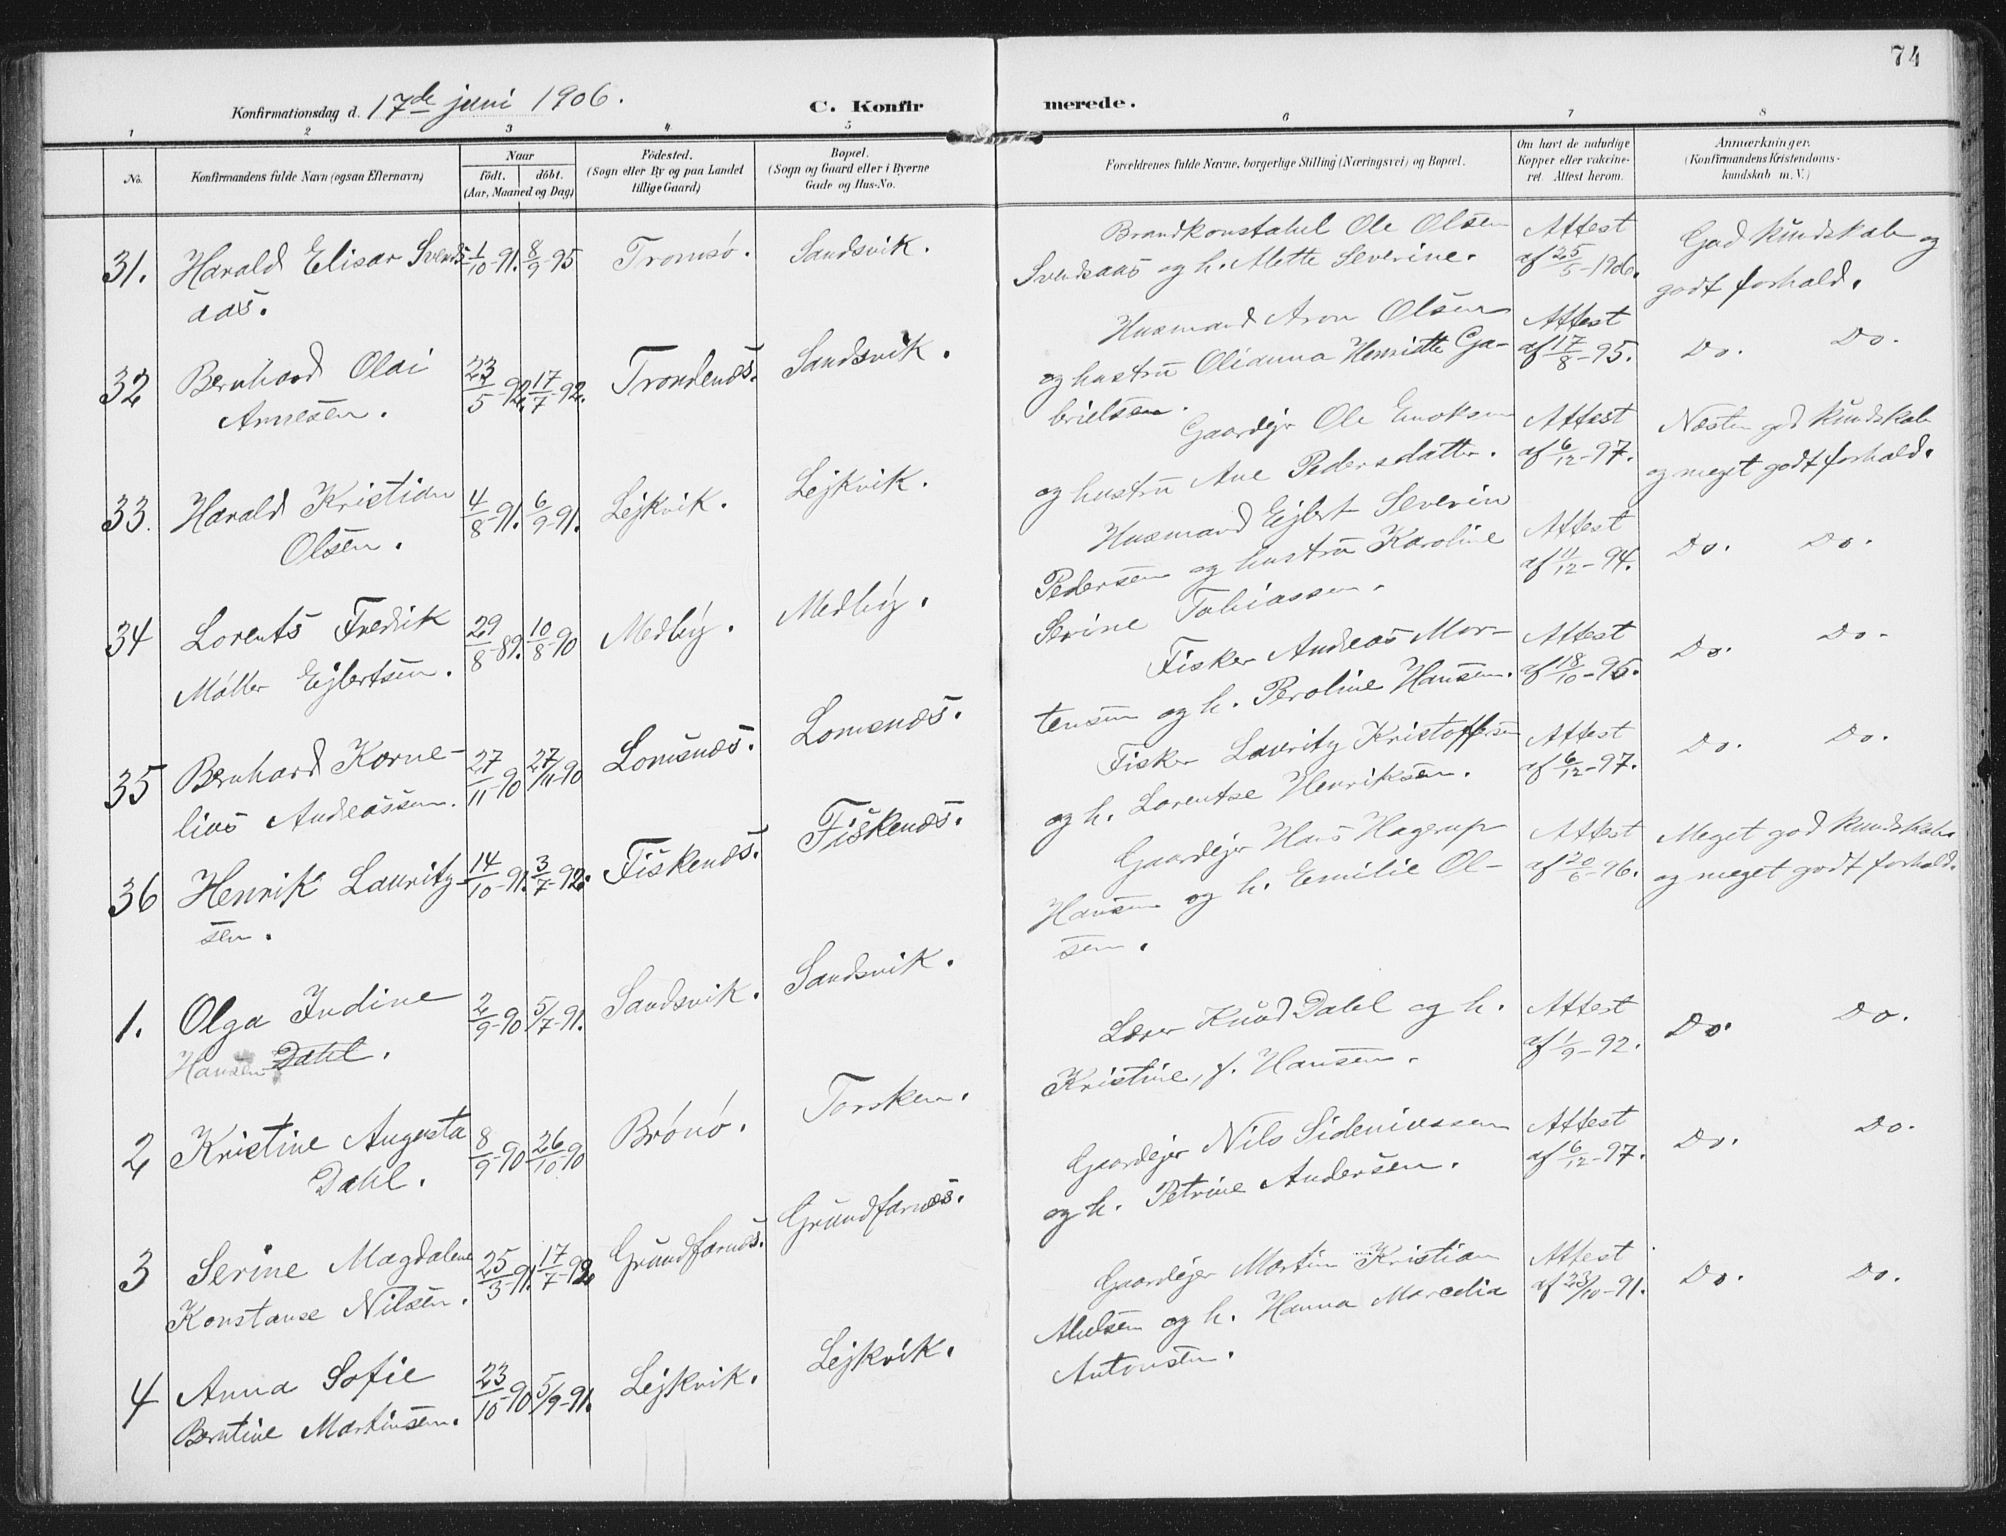 74
Konfirmationsdag d. 17de juni 1906.
C. Konfirmerede.
1 2 3 4 5 6 7 8
No.
Konfirmandens fulde Navn (ogsaa Efternavn)
Naar
födt. döbt.
(Aar, Maaned og Dag)
Födested.
(Sogn eller By og paa Landet
tillige Gaard)
Bopæl.
(Sogn og Gaard eller i Byerne
Gade og Hus-No.
Forældrenes fulde Navne, borgerlige Stilling (Næringsvei) og Bopæl.
Om havt de naturlige
Kopper eller vakcine-
ret. Attest herom.
Anmærkninger.
(Konfirmandens Kristendoms-
kundskab m. V.)
31. Harald Elisar Svends- 1/10-91. 8/9-95 Tromsø. Sandsvik.
aas.
Brandkonstabel Ole Olsen
Svendsaas og h. Alette Severine.
Attest
af 25/5-1906.
God kundskab og
godt forhold.
32 Bernhard Olai 23/5-92. 17/7-92. Trondenæs. Sandsvik.
Arnesen.
Husmand Aron Olsen
og hustru Olianna Henriette Ga-
brielsen.
Attest
af 17/8-95.
Do. Do.
33. Harald Kristian 4/8-91. 6/9-91. Lejkvik. Lejkvik.
Olsen.
Gaardejer Ole Enoksen
og hustru Ane Pedersdatter.
Attest
af 6/12-97.
Næsten god kundskab
og meget godt forhold.
34 Lorents Fredrik 29/8-89. 10/8-90 Medby. Medby.
Møller Ejlertsen.
Husmand Ejlert Severin
Pedersen og hustru Karoline
Serine Tobiassen.
Attest
af 11/12-94.
Do. Do.
35 Bernhard Korne- 27/11-90 27/11-90 Lomsnæs. Lomsnæs.
lius Andreassen.
Fisker Andreas Mor-
tensen og h. Peroline Hansen.
Attest
af 18/10-96.
Do. Do.
36 Henrik Lauritz- 14/10-91. 3/7-92. Fiskenæs. Fiskenæs.
sen.
Fisker Lauritz Kristoffersen
og h. Lorentse Henriksen.
Attest
af 6/12-97.
Do. Do.
1. Olga Indine 2/9-90 5/7-91. Sandsvik. Sandsvik.
Hansen Dahl.
Gaardejer Hans Hagerup
Hansen og h. Emilie Ol-
sen.
Attest
af 20/6-96.
Meget god kundskab
og meget godt forhold.
2 Kristine Augusta 8/9-90 26/10-90 Brønø. Torsken.
Dahl.
Lærer Knud Dahl og h.
Kristine, f. Hansen.
Attest
af 1/9-92.
Do. Do.
3 Serine Magdalene 25/3-91. 17/7-92 Grundfarnæs. Grundfarnæs.
Konstanse Nilsen.
Gaardejer Nils Sideniussen
og h. Petrine Andersen.
Attest
af 6/12-97.
Do. Do.
4 Anna Sofie 23/10-90 5/9-91. Lejkvik. Lejkvik.
Berntine Martinsen.
Gaardejer Martin Kristian
Abelsen og h. Hanna Marcelia
Antonsen.
Attest
af 23/10-91.
Do. Do.